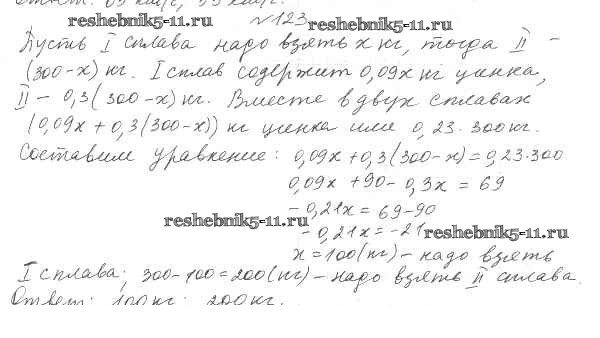 reshebnik5-11.ru №123 reshebnik5-11.ru
Пусть I сплава надо взять x кг, тогда II –
(300-x) кг. I сплав содержит 0,09x кг цинка,
II – 0,3(300-x) кг. Вместе в двух сплавах
(0,09x + 0,3(300-x)) кг цинка или 0,23·300 кг.
Составим уравнение: 0,09x + 0,3(300-x) = 0,23·300
0,09x + 90 - 0,3x = 69
- 0,21x = 69-90
reshebnik5-11.ru - 0,21x = -21 reshebnik5-11.ru
x = 100 (кг) – надо взять
I сплава; 300-100=200(кг) – надо взять II сплава.
Ответ: 100 кг; 200 кг.